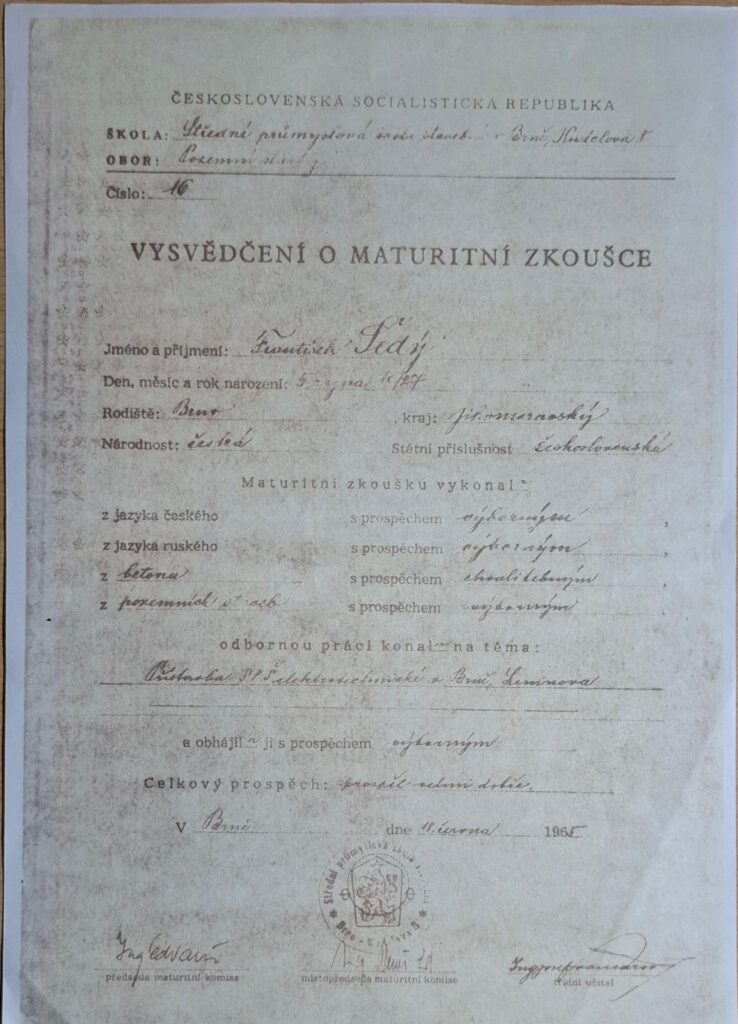 ČESKOSLOVENSKÁ SOCIALISTICKÁ REPUBLIKA
ŠKOLA: Střední průmyslová škola stavební v Brně, Kudelova 8
OBOR: Pozemní stavby
Číslo: 16
VYSVĚDČENÍ O MATURITNÍ ZKOUŠCE
Jméno a příjmení: František Šedý
Den, měsíc a rok narození: října 27
Rodiště: Brno, kraj: jihomoravský
Národnost: česká Státní příslušnost československá
Maturitní zkoušku vykonal ~
z jazyka českého s prospěchem výborným,
z jazyka ruského s prospěchem výborným,
z betonu s prospěchem chvalitebným
z pozemních staveb s prospěchem výborným
odbornou práci konal ~ na téma:
Přístavba SPŠ elektrotechnické v Brně, Leninova
a obhájil ~ ji s prospěchem výborným
Celkový prospěch: prospěl velmi dobře.
V Brně dne 18. června 1965
Střední průmyslová škola
Brno
Ing
předseda maturitní komise
místopředseda maturitní komise
třídní učitel